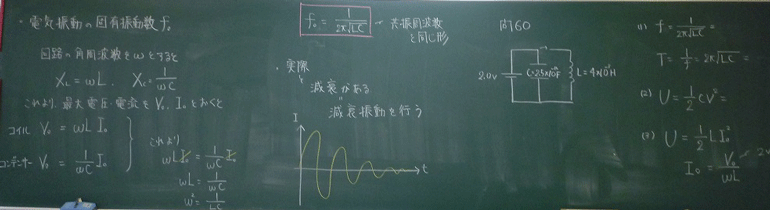 ・電気振動の固有振動数 f₀
回路の角周波数をωとすると
X_L = ωL . X_C = 1/ωC
これより、最大電圧・電流を V₀, I₀ とおくと
コイル V₀ = ωL I₀
コンデンサー V₀ = 1/ωC I₀
これより
ωL I₀ = 1/ωC I₀
ωL = 1/ωC
ω² = 1/LC
f₀ = 1/2π√LC ← 共振周波数
と同じ形
・実際
減衰がある
減衰振動を行う
I
t
問60
2.0V
L=4×10⁻³H
(1) f = 1/2π√LC =
T = 1/f = 2π√LC =
(2) U = 1/2 CV² =
(3) U = 1/2 L I₀²
I₀ = V₀/ωL